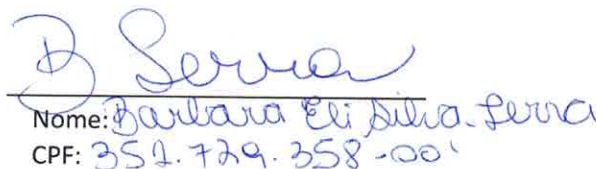 B Serra
Nome: Barbara Eli Silva Serra
CPF: 352.729.358-00